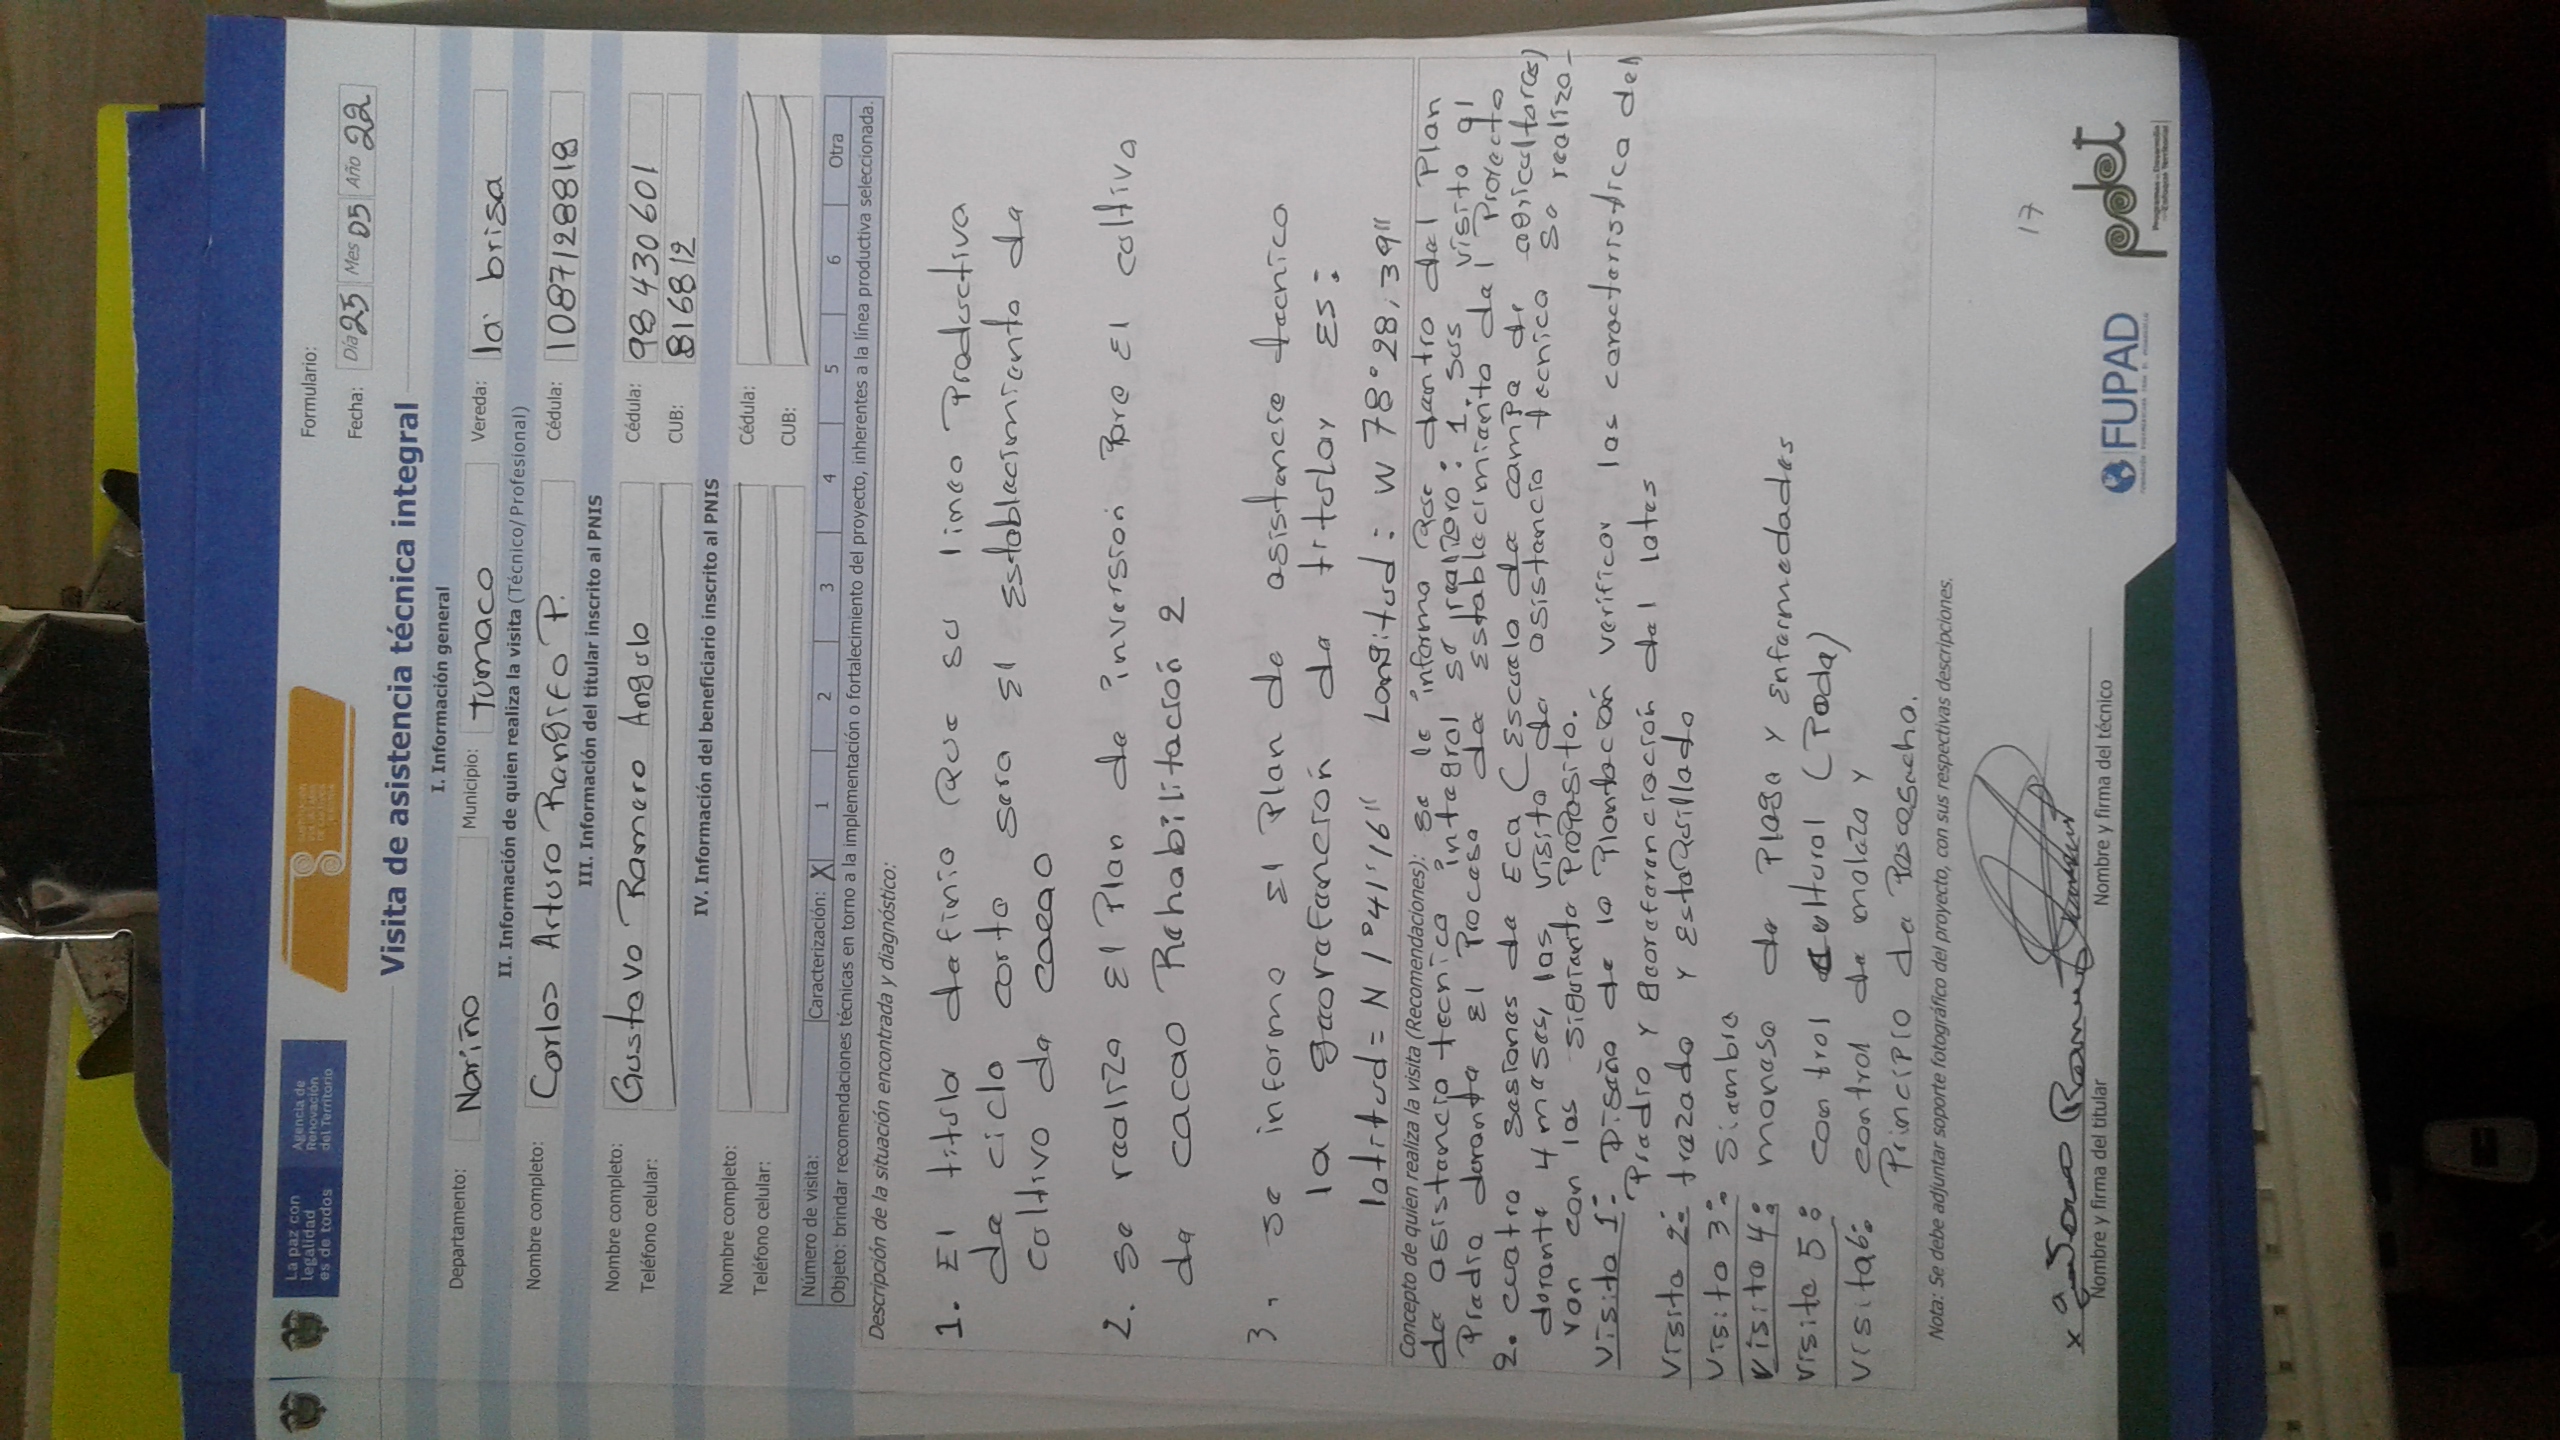 La paz con
legalidad
es de todos
Agencia de
Renovación
del Territorio
Formulario:
Fecha: Día 25 Mes 05 Año 22
Visita de asistencia técnica integral
I. Información general
Departamento: Nariño Municipio: Tumaco Vereda: la brisa
II. Información de quien realiza la visita (Técnico/Profesional)
Nombre completo: Carlos Arturo Rangifo P. Cédula: 1087128818
III. Información del titular inscrito al PNIS
Nombre completo: Gustavo Ramero Angulo Cédula: 98430601
Teléfono celular: CUB: 816812
IV. Información del beneficiario inscrito al PNIS
Nombre completo: Cédula:
Teléfono celular: CUB:
Número de visita: Caracterización: X 1 2 3 4 5 6 Otra
Objeto: brindar recomendaciones técnicas en torno a la implementación o fortalecimiento del proyecto, inherentes a la línea productiva seleccionada.
Descripción de la situación encontrada y diagnóstico:
1. El titula dafinio que su linea Productiva
de ciclo corto sera El Establacimianto da
coltivo da cacao
2. se realiza El Plan de inversion Para El coltivo
da cacao Rahabilitación 2
3. se informa El Plan de asistancia tacnica
la gaorafanción da titular Es:
latitud= N 1°41'16" Longitud: W 78°28,39"
Concepto de quien realiza la visita (Recomendaciones): se le informa que dantro dal Plan
da asistancia tecnica integral se realizara: 1. sus visita al
Pradio duranta El Procaso da Establacimianto dal Proyecto
2. cuatro sasionas da ECA (Escuala da campo de agricultores)
duranta 4 mases, las visita da asistancia tecnica se realiza-
van con las siguianta Proposito.
Visita 1: Disaño de la Plantación verificar las caractaristica del
Pradio y gaorafaranciación dal lotes
Visita 2: trazado y Estaquillado
Visita 3: Siambra
Visita 4: manaso da Plaga y Enfarmedadas
Visita 5: control cultural (Poda)
Visita 6: control da malaza y
Principio da Poscosacha.
Nota: Se debe adjuntar soporte fotográfico del proyecto, con sus respectivas descripciones.
17
Nombre y firma del titular
Nombre y firma del técnico
FUPAD
pdet
Programas de Desarrollo
con Enfoque Territorial